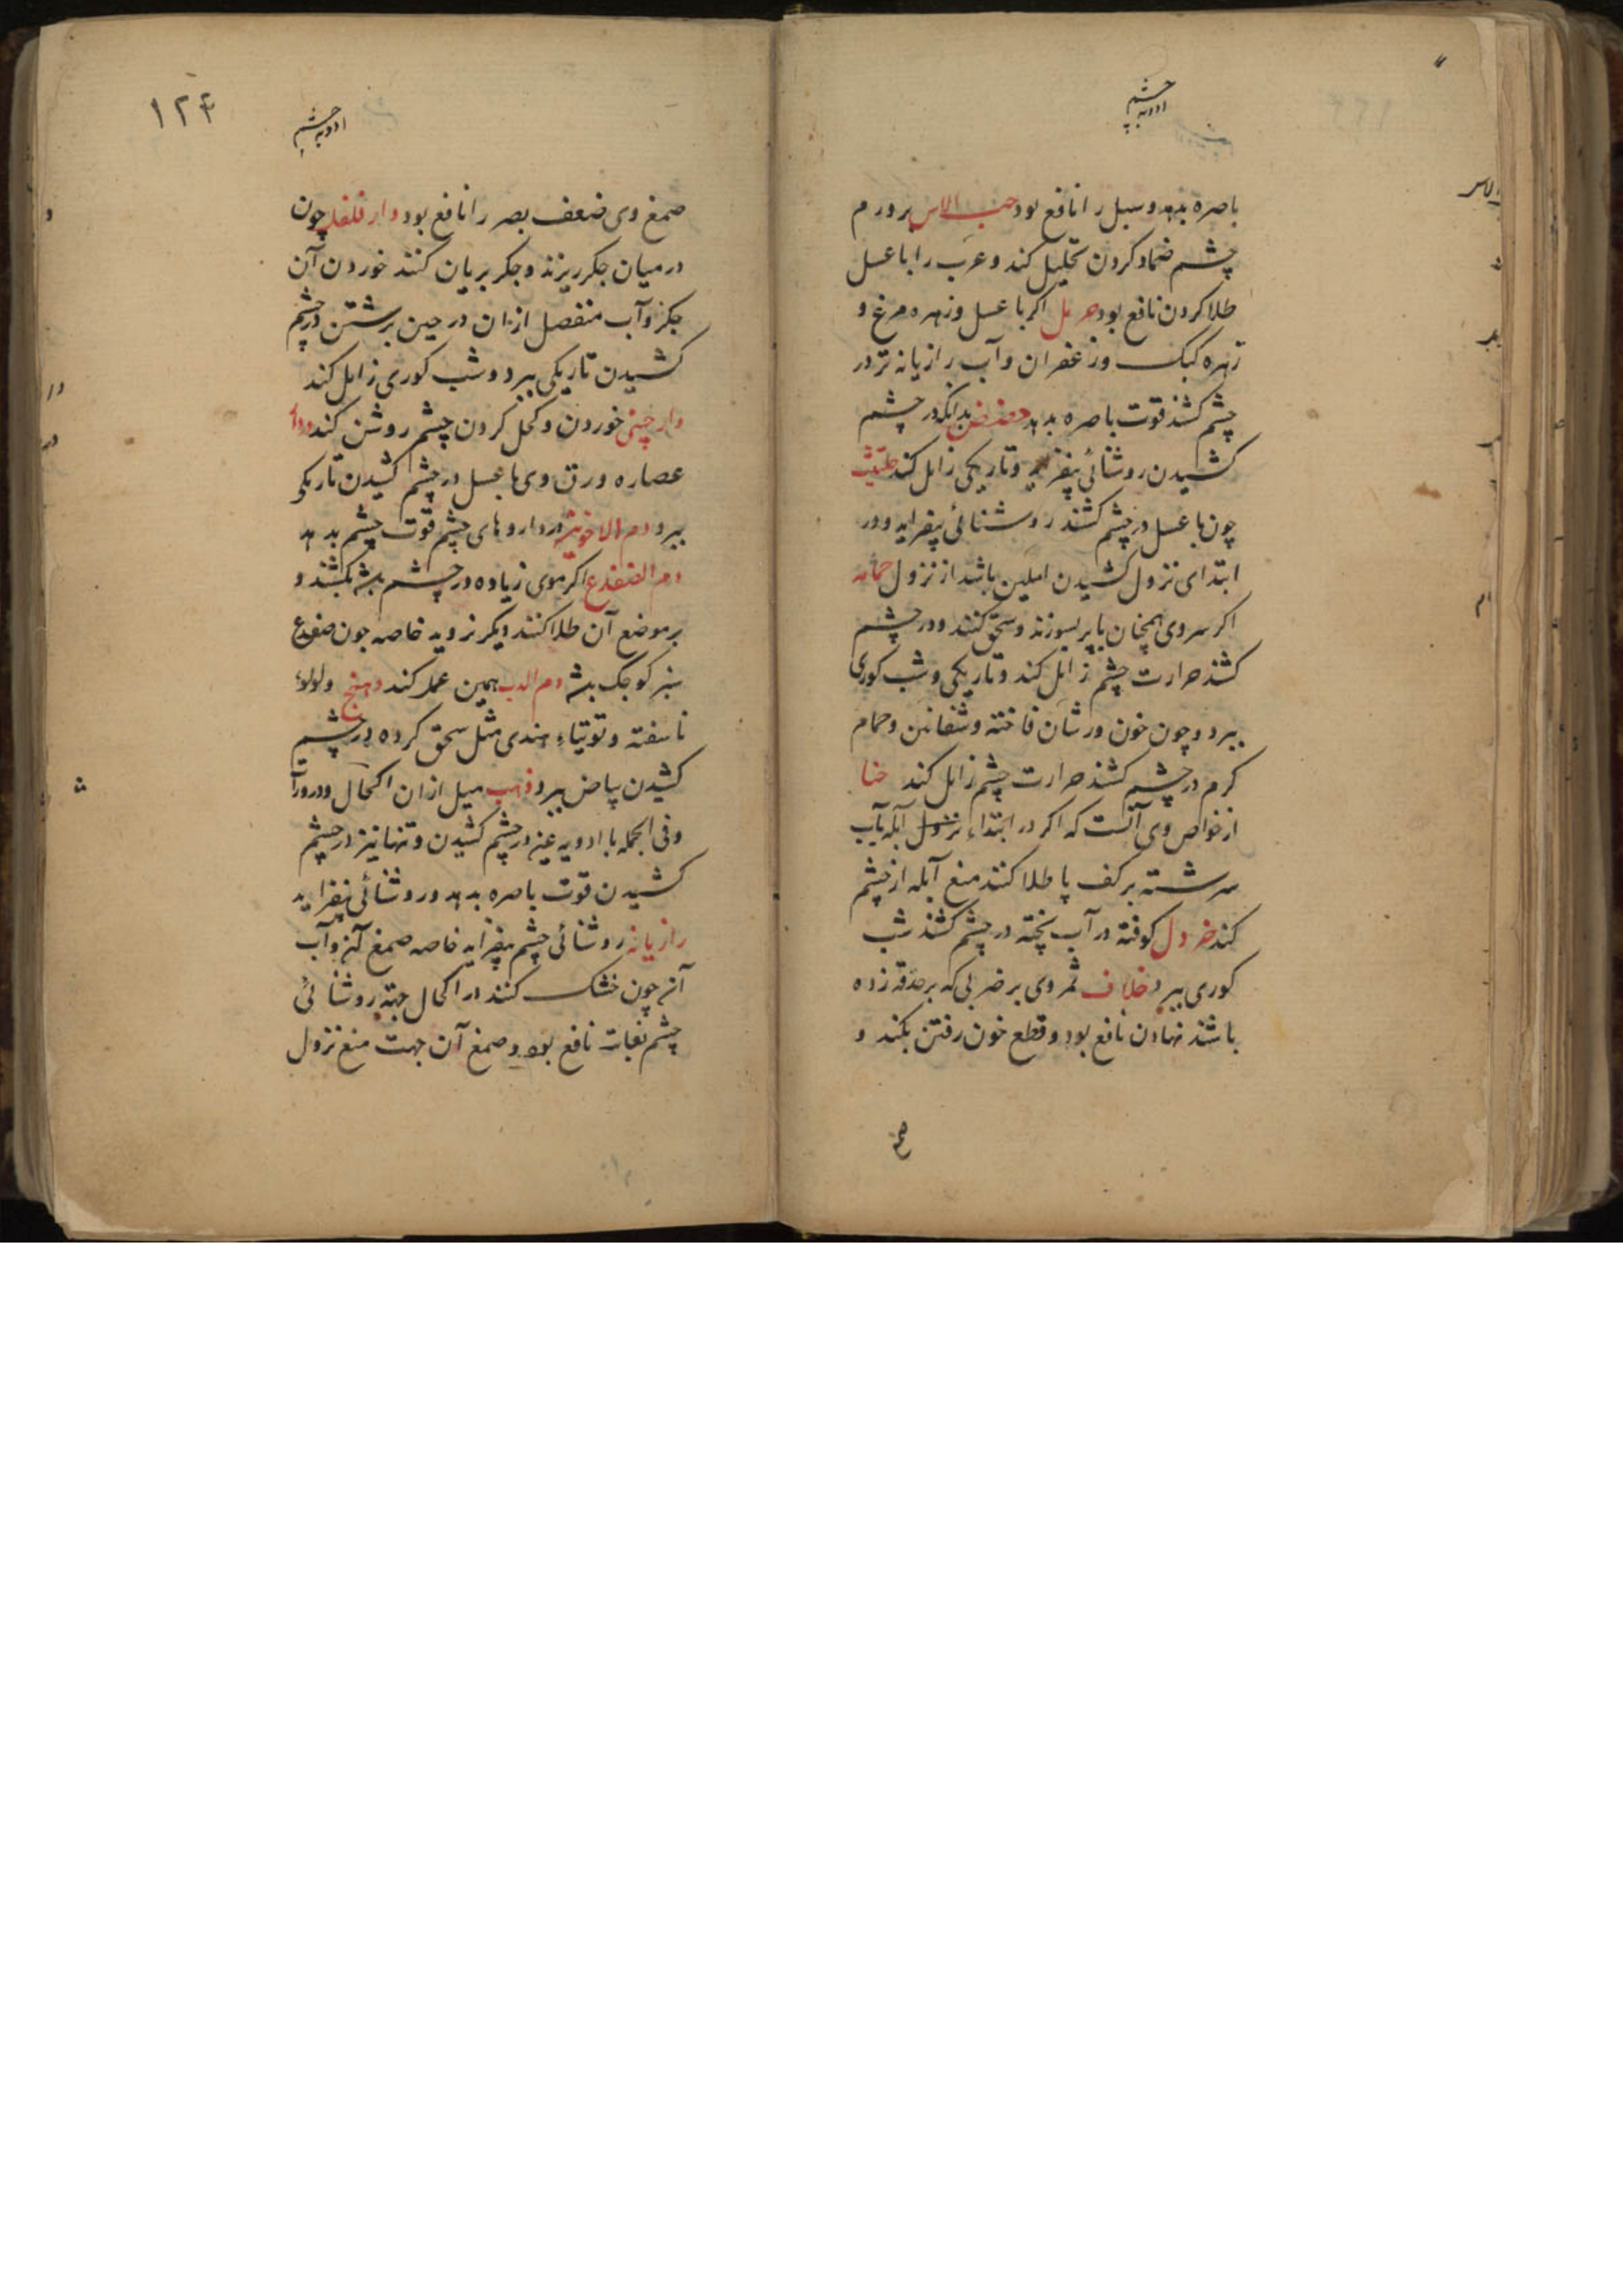 ادویه چشم
باصره بدهد و سبل را نافع بود حب الاس بر ورم
چشم ضماد کردن تحلیل کند و غرب را با عسل
طلا کردن نافع بود حرمل اکر با عسل و زهره مرغ و
زهره کبک و زعفران و آب رازیانه تر در
چشم کشند قوت باصره بدهد حضض بدانکه در چشم
کشیدن روشنائی بیفزاید و تاریکی زایل کند حلتیت
چون با عسل در چشم کشند روشنائی بیفزاید و در
ابتدای نزول کشیدن ایمن باشد از نزول حمامه
اکر سر وی همچنان با پر بسوزند و سحق کنند و در چشم
کشند حرارت چشم زایل کند و تاریکی و شب کوری
ببرد و چون خون ورشان فاخته و شفانین و حمام
کرم در چشم کشند حرارت چشم زایل کند حنا
از خواص وی آنست که اکر در ابتداء نزول آبله بآب
سرشته بر کف پا طلا کنند منع آبله از چشم
کند خردل کوفته در آب پخته در چشم کشند شب
کوری ببرد خلاف ثمر وی بر ضربی که بر حدقه زده
باشند نهادن نافع بود و قطع خون رفتن بکند و
صمغ
۱۲۴
ادویه چشم
صمغ وی ضعف بصر را نافع بود دار فلفل چون
در میان جکر ریزند و جکر بریان کنند خوردن آن
جکر و آب منفصل ازان در حین برشتن در چشم
کشیدن تاریکی ببرد و شب کوری زایل کند
دارچینی خوردن و کحل کردن چشم روشن کند
عصاره ورق وی با عسل در چشم کشیدن تاریکی
ببرد دم الاخوین در داروهای چشم قوت چشم بدهد
دم الضفدع اکر موی زیاده در چشم باشد بکنند و
بر موضع آن طلا کنند دیکر نروید خاصه چون ضفدع
سبز کوچک باشد دم الدب همین عمل کند دهنج و لولوء
ناسفته و توتیاء هندی مثل سحق کرده در چشم
کشیدن بیاض ببرد ذهب میل ازان اکحال و درورآ
و فی الجمله با ادویه عین در چشم کشیدن و تنها نیز در چشم
کشیدن قوت باصره بدهد و روشنائی بیفزاید
رازیانه روشنائی چشم بیفزاید خاصه صمغ آن و آب
آن چون خشک کنند در اکحال جهة روشنائی
چشم بغایت نافع بود و صمغ آن جهت منع نزول